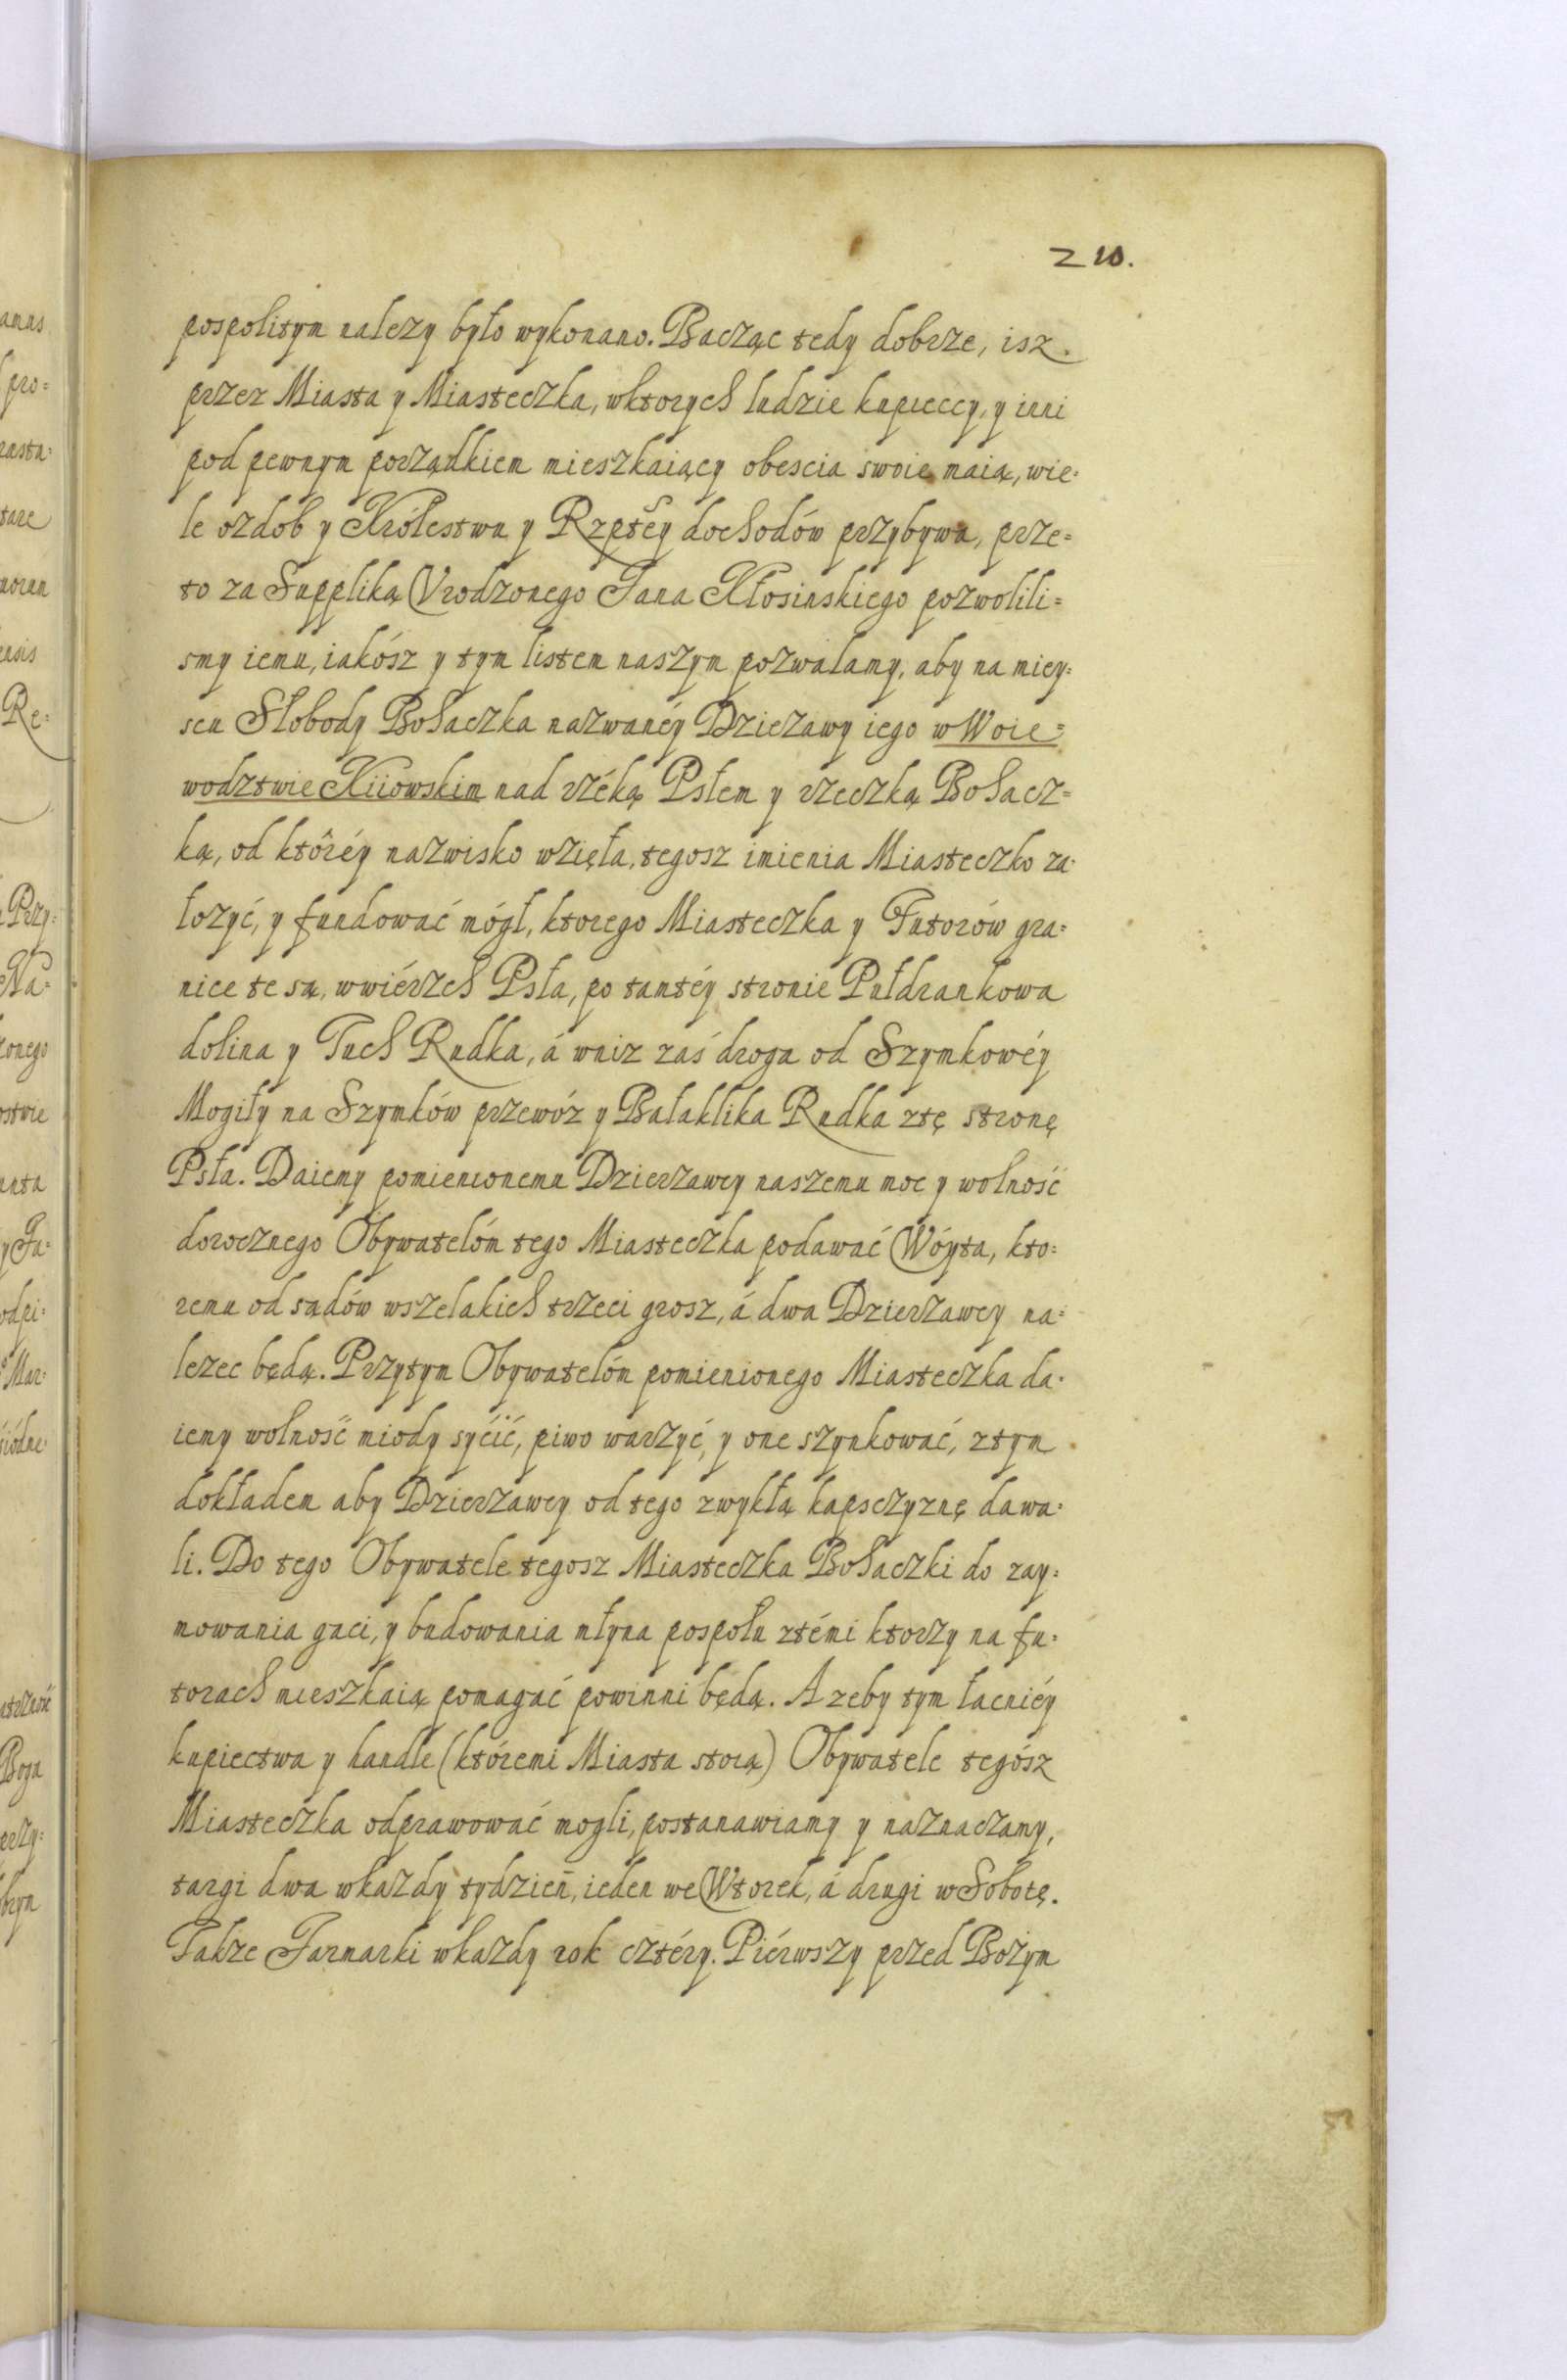 210.
pospolitym nalezy było wykonano. Bacząc tedy dobrze, isz
przez Miasta y Miasteczka, wktorych ludzie kupieccy, y inni
pod pewnym porządkiem mieszkaiący obescia swoie maią, wie=
le ozdob y Królestwu y Rzptey dochodów przybywa, prze=
to za Suppliką Vrodzonego Jana Kłosinskiego pozwolili=
smy iemu, iakósz y tym listem naszym pozwalamy, aby na miey=
scu Słobody Bohaczka nazwanéy Dziezawy iego w Woie=
wodztwie Kiiowskim nad rzéką Psłem y rzeczką Bohacz=
ką, od któréy nazwisko wzięła, tegosz imienia Miasteczko za=
łozyć, y fundować mógł, ktorego Miasteczka y Futorów gra=
nice te są, wwiérzch Psła, po tamtéy stronie Pułdrankowa
dolina y Tuch Rudka, á wniz zaś droga od Szymkowéy
Mogiły na Szymków przewóz y Bałaklika Rudka ztę stronę
Psła. Daiemy pomienionemu Dzierzawcy naszemu moc y wolność
dorocznego Obywatelóm tego Miasteczka podawać Wóyta, kto=
remu od sądów wszelakich trzeci grosz, á dwa Dzierzawcy na=
lezec będą. Przytym Obywatelóm pomienionego Miasteczka da=
iemy wolność miody syćić, piwo warzyć, y one szynkować, ztym
dokładem aby Dzierzawcy od tego zwykłą kapsczyznę dawa=
li. Do tego Obywatele tegosz Miasteczka Bohaczki do zay=
mowania gaci, y budowania młyna pospołu ztémi ktorzy na fu=
torach mieszkaią pomagać powinni będą. A zeby tym łacniéy
kupiectwa y handle (któremi Miasta stoią) Obywatele tegósz
Miasteczka odprawować mogli, postanawiamy y naznaczamy,
targi dwa wkazdy tydzień, ieden we Wtorek, á drugi w Sobotę.
Takze Jarmarki wkazdy rok cztéry. Piérwszy przed Bożym